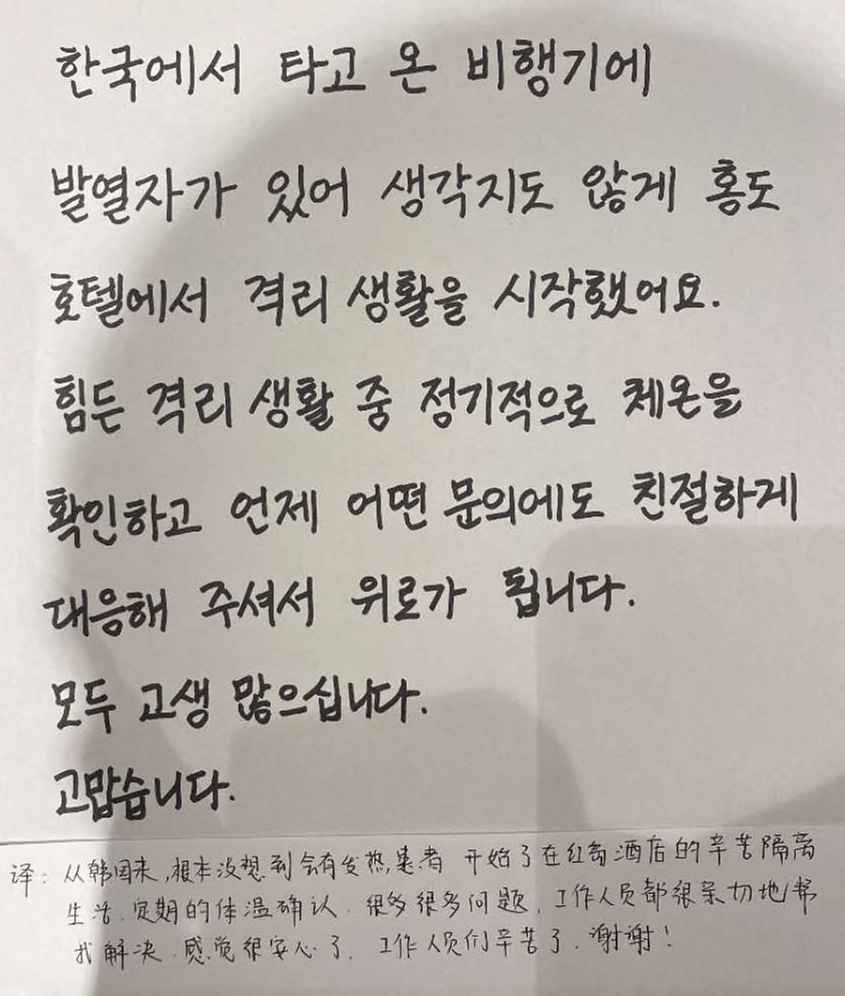 한국에서 타고 온 비행기에
발열자가 있어 생각지도 않게 홍도
호텔에서 격리 생활을 시작했어요.
힘든 격리 생활 중 정기적으로 체온을
확인하고 언제 어떤 문의에도 친절하게
대응해 주셔서 위로가 됩니다.
모두 고생 많으십니다.
고맙습니다.
译：从韩国来,根本没想到会有发热患者 开始了在红岛酒店的辛苦隔离
生活.定期的体温确认.很多很多问题.工作人员都很亲切地帮
我解决.感觉很安心了.工作人员们辛苦了.谢谢！